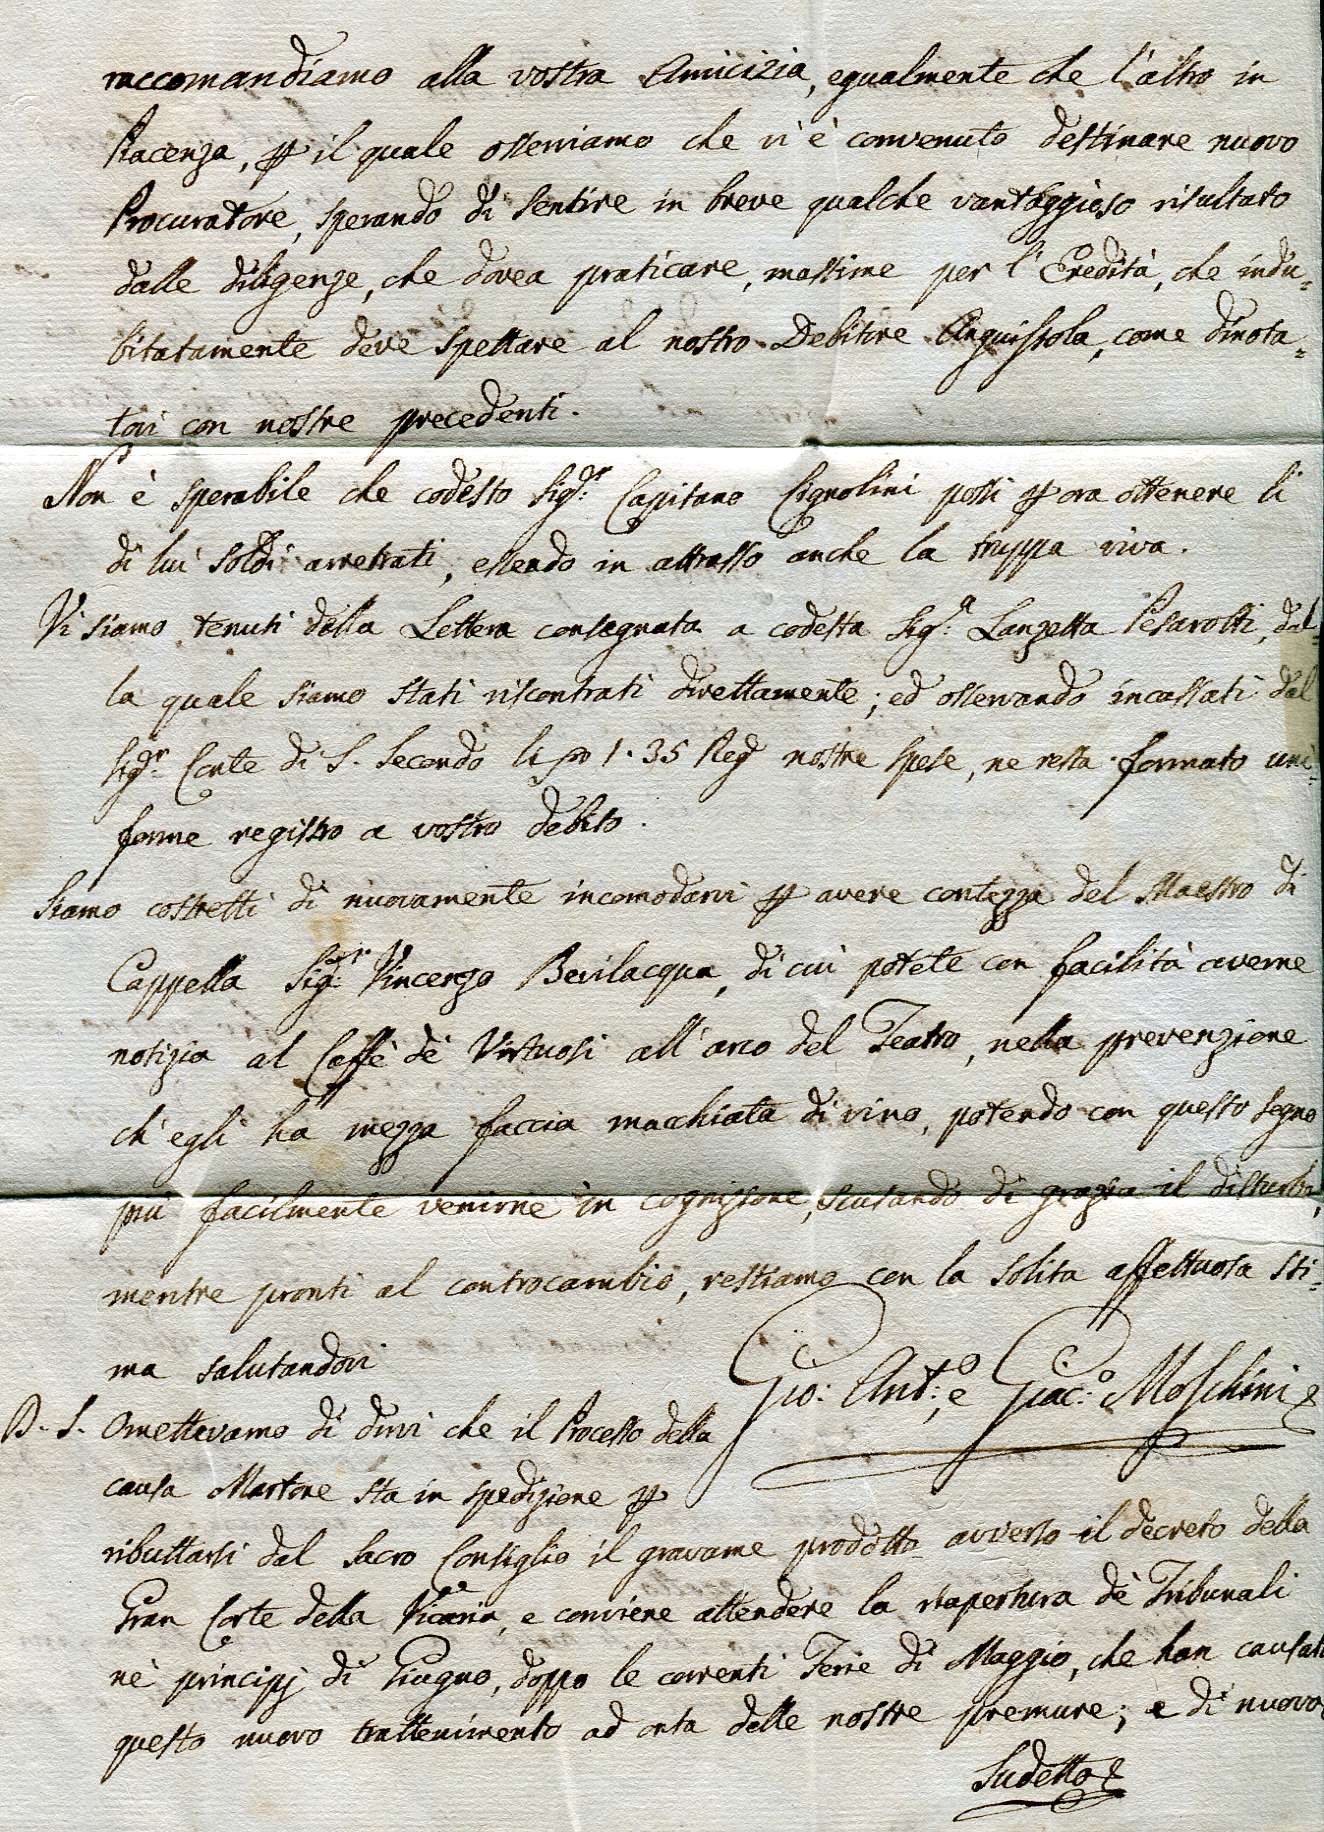 raccomandiamo alla vostra Amicizia, egualmente che l'altro in
Piacenza, p il quale osserviamo che vi è convenuto destinare nuovo
Procuratore, sperando di sentire in breve qualche vantaggioso risultato
dalle diligenze, che dovea praticare, massime per l'Eredità, che indu=
bitatamente deve spettare al nostro Debitore Anguissola, come dinota=
tovi con nostre precedenti.
Non è sperabile che codesto Sigr: Capitano Cignolini possi p ora ottenere li
di lui soldi arretrati, essendo in attrasso anche la truppa viva.
Vi siamo tenuti della Lettera consegnata a codesta Sig:a Lanzetta Pesarotti, dal=
la quale siamo stati riscontrati direttamente; ed osservando incassati dal
Sigr: Conte di S. Secondo li 1.35 Regd nostre spese, ne resta formato uni=
forme registro a vostro debito.
Siamo costretti di nuovamente incomodarvi p avere contezza del Maestro di
Cappella Sigr: Vincenzo Bevilacqua, di cui potete con facilità averne
notizia al Caffè dè Virtuosi all'arco del Teatro, nella prevenzione
ch'egli ha mezza faccia macchiata di vino, potendo con questo segno
più facilmente venirne in cognizione, scusando di grazia il disturbo,
mentre pronti al controcambio, restiamo con la solita affettuosa sti=
ma salutandovi
Gio: Ant:o e Giac:o Moschini
P. S. Omettevamo di dirvi che il Processo della
causa Martone sta in spedizione p
ributtarsi dal Sacro Consiglio il gravame prodotto avverso il decreto della
Gran Corte della Vicaria, e conviene attendere la riapertura dè Tribunali
nè principj di Giugno, doppo le correnti Ferie di Maggio, che han causato
questo nuovo trattenimento ad onta delle nostre premure; e di nuovo
Sudetto